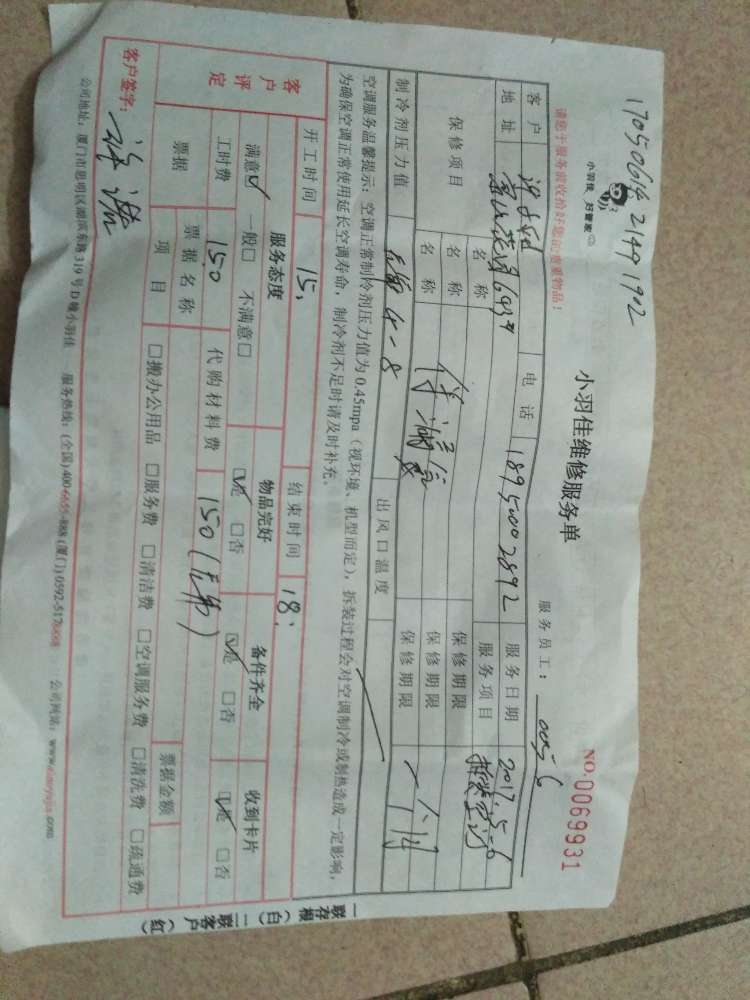 17050614 2149 1902
小羽佳 好管家
小羽佳维修服务单
服务员工： 00556
NO.0069931
请您于服务前收拾好您的贵重物品！
客户 电话 18950002892 服务日期 2017.5-6
地址 服务项目
保修项目 名称 保修期限
名称 保修期限
名称 保修期限 一个月
制冷剂压力值 4-8 出风口温度
空调服务温馨提示：空调正常制冷剂压力值为 0.45mpa（视环境、机型而定），拆装过程会对空调制冷或制热造成一定影响，
为确保空调正常使用延长空调寿命，制冷剂不足时请及时补充。
开工时间 15: 结束时间 18:
客户评定 服务态度 物品完好 备件齐全 收到卡片
满意☑ 一般□ 不满意□ ☑是 □否 ☑是 □否 ☑是 □否
工时费 150 代购材料费 150
票据 票据名称 票据金额
项目 □搬办公用品 □服务费 □清洁费 □空调服务费 □清洗费 □疏通费
客户签字：
公司地址：厦门市思明区湖滨东路 319 号 D 幢小羽佳 服务热线：(全国) 400-6655-888 (厦门) 0592-5176888 公司网站：www.xiaoyujia.com
一联存根（白） 二联客户（红）